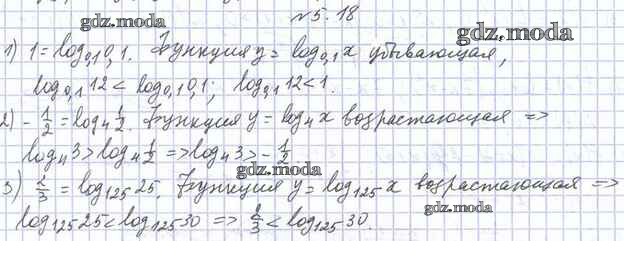 №5.18
gdz.moda
gdz.moda
1) 1 = log₀,₁0,1. Функция y = log₀,₁x убывающая,
log₀,₁12 < log₀,₁0,1; log₀,₁12 < 1.
gdz.moda
2) - 1/2 = log₄ 1/2. Функция y = log₄x возрастающая =>
log₄3 > log₄ 1/2 => log₄3 > - 1/2
gdz.moda
3) 2/3 = log₁₂₅25. Функция y = log₁₂₅x возрастающая =>
log₁₂₅25 < log₁₂₅30 => 2/3 < log₁₂₅30.
gdz.moda